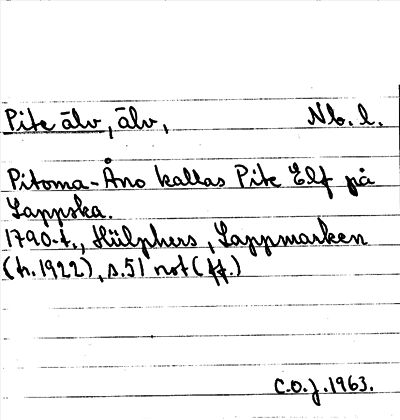 Pite älv, älv, Nb. l.
Pitoma-Åno kallas Pite Elf på
Lappska.
1790-t., Hülphers, Lappmarken
(tr. 1922), s. 51 not (ff.)
C.O.J. 1963.